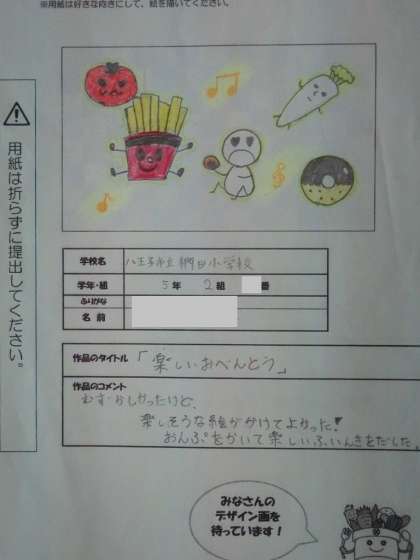 ※用紙は好きな向きにして、絵を描いてください。
用紙は折らずに提出してください。
学校名 八王子市立椚田小学校
学年・組 5年 2組 番
ふりがな
名前
作品のタイトル 「楽しいおべんとう」
作品のコメント
むずかしかったけど、
楽しそうな絵がかけてよかった!
おんぷをかいて楽しいふいんきをだした。
みなさんの
デザイン画を
待っています!